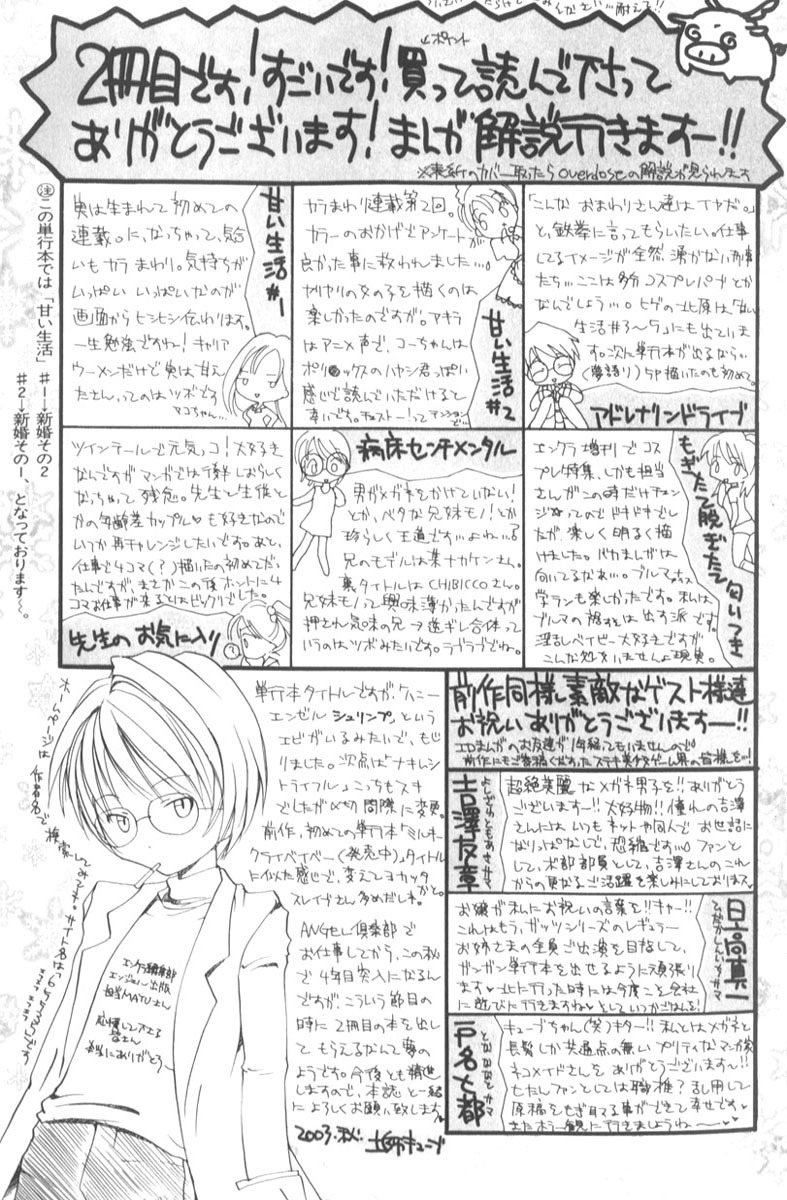 ↙ポイント
2冊目です!すごいです!買って読んで下さって
ありがとうございます!まんが解説行きますー!!
※表紙のカバー取ったらoverdoseの解説が見られます
㊟この単行本では「甘い生活」 #1→新婚その2
#2→新婚その1、となっております〜。
甘い生活#1
実は生まれて初めての
連載。に、なっちゃって、気合
いもカラまわり。気持ちが
いっぱいいっぱいなのが
画面からヒシヒシ伝わります。
一生勉強ですね!キャリア
ウーメンだけで実は甘え
たさんってのはツボです
マコちゃん…
甘い生活#2
カラまわり連載第2回。
カラーのおかげでアンケートが
良かった事に救われました…。
ヤリヤリの女の子を描くのは
楽しかったのですが。アキラ
はアニメ声で、コーちゃんは
ポリックスのハヤシ君っぽい
感じで読んでいただけると
幸いです。チェストー!って
アドレナリンドライブ
「こんなおまわりさん達はイヤだ。」
と、鉄拳に言ってもらいたい。仕事
してるイメージが全然湧かない刑事
たち…ここは多分コスプレパブとか
なんでしょう…。ヒゲの北原は「甘い
生活#3〜5」にも出ていま
す。次に単行本が出るなら…
(夢語り)5P描いたのも初めて。
先生のお気に入り
ツインテールで元気っコ!大好き
なんですがマンガでは
なっちゃって残念。先生と生徒と
かの年齢差カップル♥も好きなので
いつか再チャレンジしたいです。あと、
仕事で4コマ(?)描いたの初めてだっ
たんですが、まさかこの後ホントに4
コマお仕事が来るとはビックリでした。
病床センチメンタル
男がメガネをかけていない!
とか、ベタな兄妹モノ!とか
珍らしく王道です…よね…?
兄のモデルは某ナカケンさん。
裏タイトルはCHIBICCOさん。
兄妹モノって興味薄かったんですが
押され気味の兄→逆ギレ合体って
いうのはツボみたいです。ラブラブでね。
もぎたて脱ぎたて匂いつき
エンクラ増刊でコス
プレ特集、しかも担当
さんがこの時だけチェン
ジってのでドキドキでし
たが、楽しく明るく描
けました。バカまんがは
向いてるなぁ…。ブルマもぁぁ、
学ランも楽しかったです。私は
ブルマの裾はは出す派です。
淫乱ベイビー大好きですが
こんな処いませんよ現実。
単行本タイトルですが、ハニー
エンゼルシュリンプ、という
エビがいるみたいで、もじ
りました。次点は「ナキレシ
トライフル」こっちもスキ
でしたが〆切間際に変更。
前作、初めての単行本「ミルキー
クライベイベー(発売中)」タイトル
に似た感じで、変えてヨカッタ
かと。
スレイブさん多めだしネ。
ANGEL倶楽部で
お仕事してから、この秋
で4年目突入になるん
ですが、こういう節目の
時に2冊目の本を出し
てもらえるなんて夢の
ようです。今後とも精進
しますので、本誌と一緒
によろしくお願い致します
2003.秋. 土师キューブ
ホームページは
作者名で
検索してみて下さい。
エンクラ編集部
エンジェル出版
担当MAYUさん
応援して下さる
皆さん
本当にありがとう〜
前作同様、素敵なゲスト様達
お祝いありがとうございますー!!
前作にもご寄稿くださったステキ美少女ゲーム界の皆様を…!
吉澤友章
よしざわともあきサマ
超絶美麗なメガネ男子を!!ありがとう
ございます−!!大好物!!憧れの吉澤
さんには、いつもネットや同人でお世話に
なりっぱなしで、恐縮です…。ファンと
して、本部部員として、吉澤さんのこれ
からの更なるご活躍を楽しみにしておりマス。
日高真一
ひだかしんいちサマ
お嬢が私にお祝いの言葉を!!キャー!!
これはもう、ガッツシリーズのレギュラー
お姉さまの全員ご出演を目指して、
ガンガン単行本を出せるように頑張り
ます♥北に行った時には今度こそ会社
に遊びに行きますね♥としていつかごはんを!
戸名七都
となななとサマ
キューブちゃん(笑)キター!!私とはメガネと
長髪しか共通点の無いプリティなマンガ家
ネコメイドさんをありがとうございます〜!!
もたしたファンとしては職権?乱用して
原稿をもぎ取る事ができて幸せです♥
またホラー観に行きましょうねー